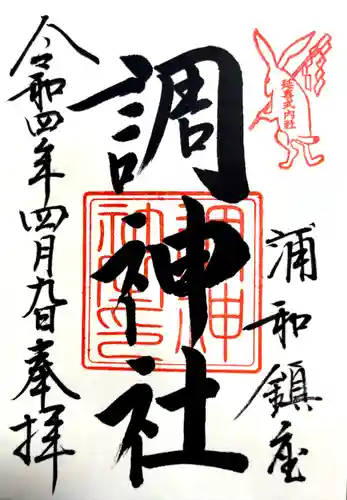 延喜式内社
浦和鎮座
調神社
調神社印
令和四年四月九日奉拝